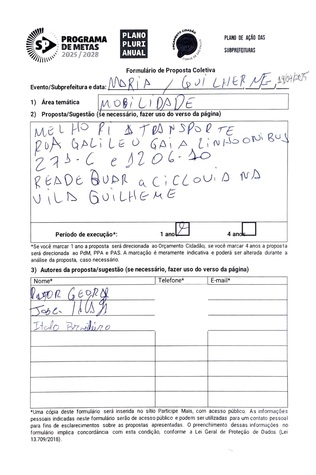 SP PROGRAMA DE METAS 2025 / 2028
PLANO PLURI ANUAL
PLANO DE AÇÃO DAS SUBPREFEITURAS
Formulário de Proposta Coletiva
Evento/Subprefeitura e data: MARIA / GUILHERME,
1) Área temática MOBILIDADE
2) Proposta/Sugestão (se necessário, fazer uso do verso da página)
MELHO RIA TRANSPORTE
RUA GALILEU GAIA LINHA ONIBUS
271-C e 1206-10
READE QUAR a CICLOVIA NA
VILA GUILHEME
Período de execução*: 1 ano 4 anos
*Se você marcar 1 ano a proposta será direcionada ao Orçamento Cidadão; se você marcar 4 anos a proposta
será direcionada ao PdM, PPA e PAS. A marcação é meramente indicativa e poderá ser alterada durante a
análise da proposta, caso necessário.
3) Autores da proposta/sugestão (se necessário, fazer uso do verso da página)
Nome* Telefone* E-mail*
José
Italo
*Uma cópia deste formulário será inserida no sítio Participe Mais, com acesso público. As informações
pessoais indicadas neste formulário serão de acesso público e podem ser utilizadas para um contato pessoal
para fins de esclarecimentos sobre as propostas apresentadas. O preenchimento dessas informações no
formulário implica concordância com esta condição, conforme a Lei Geral de Proteção de Dados (Lei
13.709/2018).